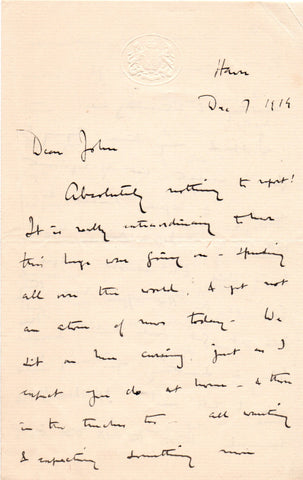 Havre
Dec 7 1914
Dear John
Absolutely nothing to report!
It is really extraordinary to have
this huge war going on - spreading
all over the world, & yet not
an atom of news today. We
sit on here cursing, just as I
expect you do at home - & those
in the trenches too - all waiting
& expecting something more